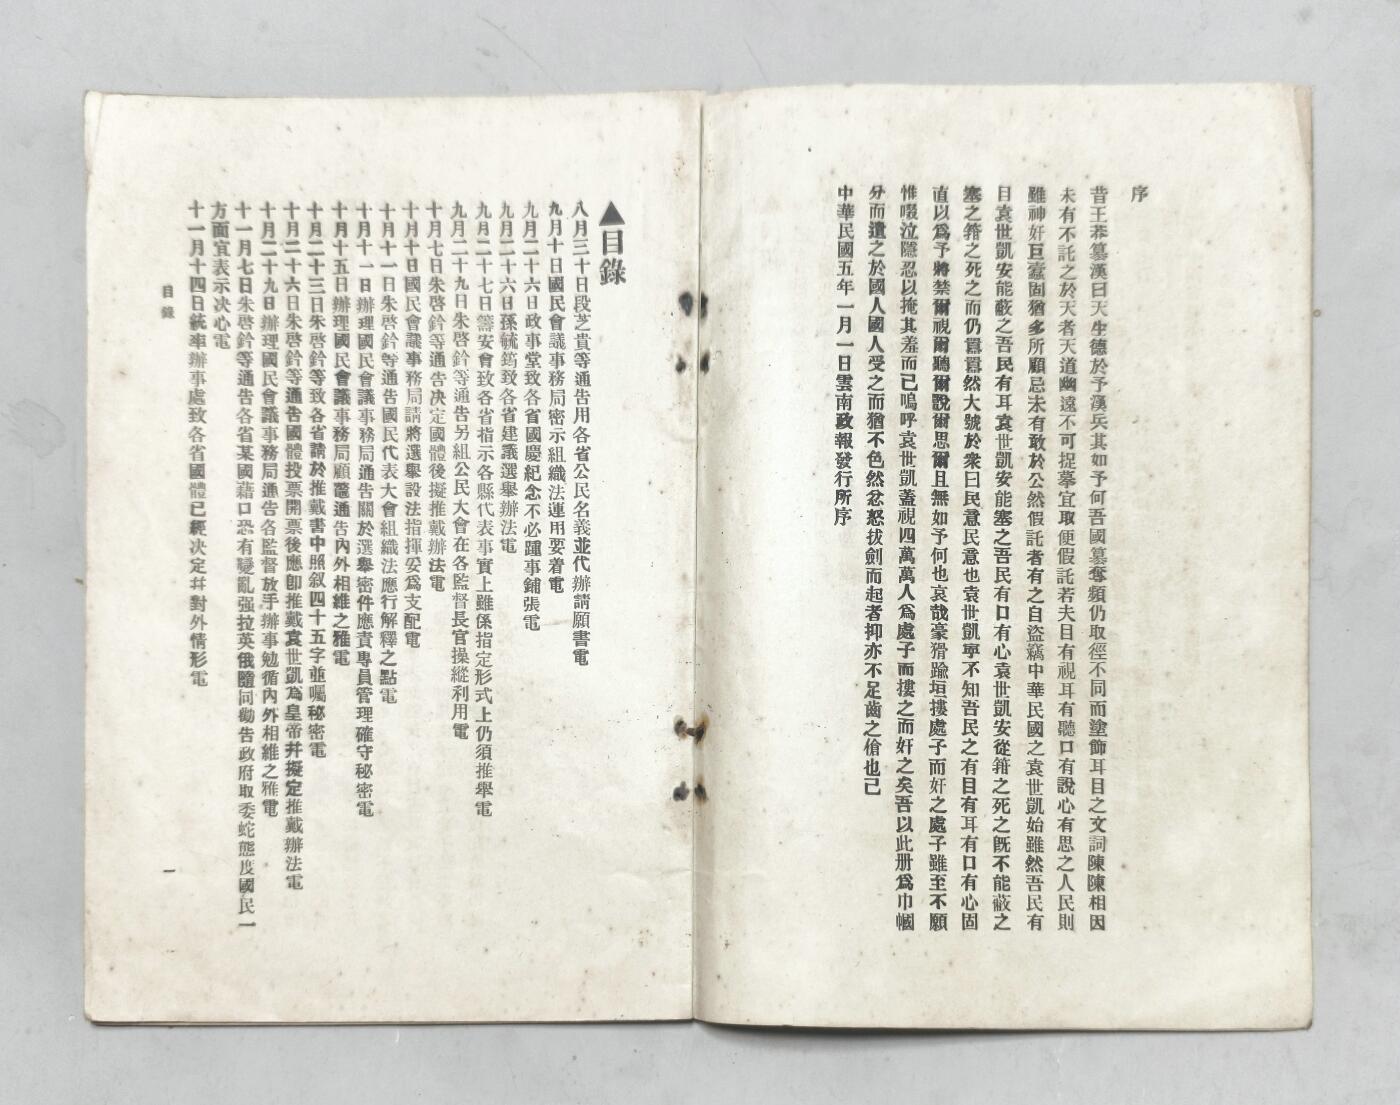 序
昔王莽纂漢曰天生德於予漢兵其如予何吾國纂奪頻仍取徑不同而塗飾耳目之文詞陳陳相因
未有不託之於天者天道幽遠不可捉摹宜取便假託若夫目有視耳有聽口有說心有思之人民則
雖神奸巨蠹固猶多所顧忌未有敢於公然假託者有之自盜竊中華民國之袁世凱始雖然吾民有
目袁世凱安能蔽之吾民有耳袁世凱安能塞之吾民有口有心袁世凱安從箝之死之旣不能蔽之
塞之箝之死之而仍囂囂然大號於衆曰民意民意也袁世凱寧不知吾民之有目有耳有口有心固
直以爲予將禁爾視爾聽爾說爾思爾且無如予何也哀哉豪猾踰垣摟處子而奸之處子雖至不願
惟啜泣隱忍以掩其羞而已嗚呼袁世凱蓋視四萬萬人爲處子而摟之而奸之矣吾以此册爲巾幗
分而遺之於國人國人受之而猶不色然忿怒拔劍而起者抑亦不足齒之傖也已
中華民國五年一月一日雲南政報發行所序
▲目錄
八月三十日段芝貴等通告用各省公民名義並代辦請願書電
九月十日國民會議事務局密示組織法運用要着電
九月二十六日政事堂致各省國慶紀念不必踵事鋪張電
九月二十六日孫毓筠致各省建議選舉辦法電
九月二十七日籌安會致各省指示各縣代表事實上雖係指定形式上仍須推舉電
九月二十九日朱啓鈐等通告另組公民大會在各監督長官操縱利用電
十月七日朱啓鈐等通告决定國體後擬推戴辦法電
十月十日國民會議事務局請將選舉設法指揮妥爲支配電
十月十一日朱啓鈐等通告國民代表大會組織法應行解釋之點電
十月十一日辦理國民會議事務局通告關於選舉密件應責專員管理確守秘密電
十月十五日辦理國民會議事務局顧鼇通告內外相維之雅電
十月二十三日朱啓鈐等致各省請於推戴書中照叙四十五字並囑秘密電
十月二十六日朱啓鈐等通告國體投票開票後應卽推戴袁世凱為皇帝并擬定推戴辦法電
十月二十九日辦理國民會議事務局通告各監督放手辦事勉循內外相維之雅電
十一月七日朱啓鈐等通告各省某國藉口恐有變亂强拉英俄隨同勸告政府取委蛇態度國民一
方面宜表示决心電
十一月十四日統率辦事處致各省國體已經决定并對外情形電
目錄
一